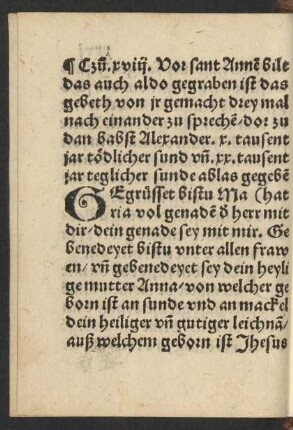 ¶ Czū. xviij. Vor sant Annē bilt
das auch aldo gegraben ist das
gebeth von jr gemacht drey mal
nach einander zu sprechē/dor zu
dan babst Alexander. x. tausent
jar tödlicher sund vñ. xx. tausent
jar teglicher sunde ablas gegebē
GEgrüsset bistu Ma hat
ria vol genadē d̄ herr mit
dir/dein genade sey mit mir. Ge
benedeyet bistu vnter allen fraw
en/vñ gebenedeyet sey dein heyli
ge mutter Anna/von welcher ge
born ist an sunde vnd an mackel
dein heiliger vñ gutiger leichnā/
auß welchem geborn ist Jhesus